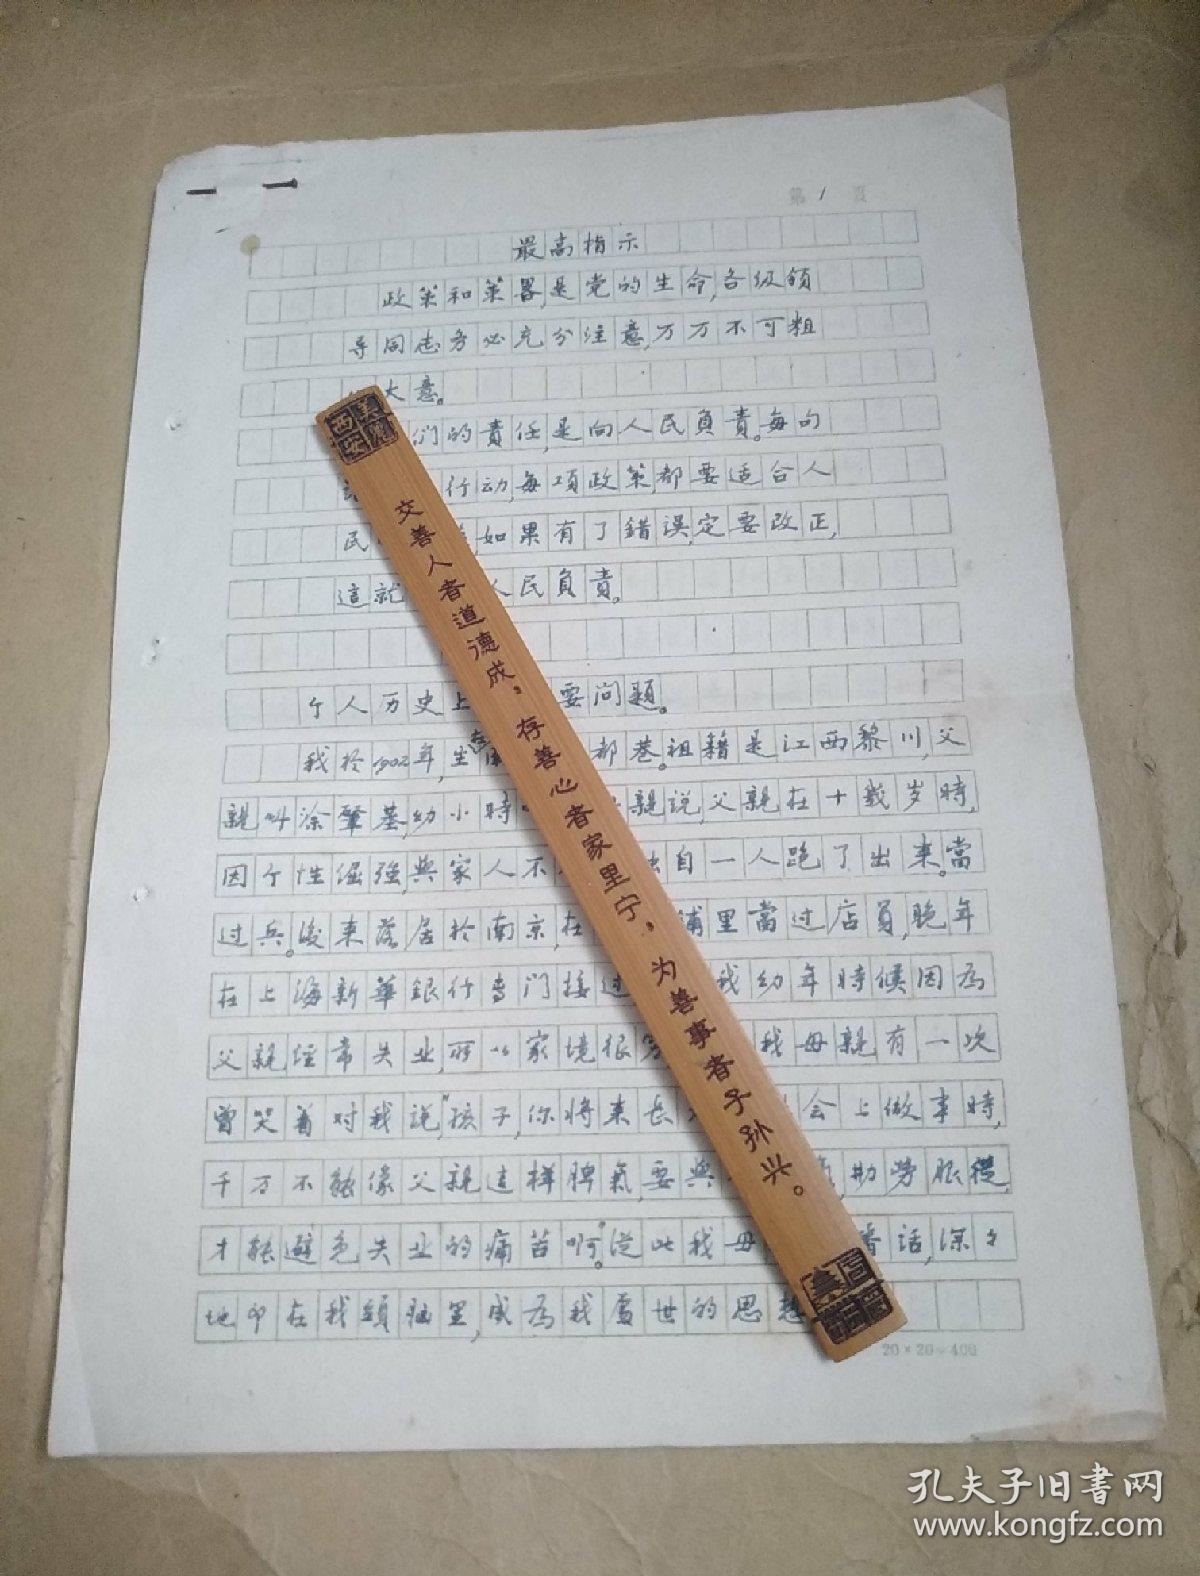 第 1 頁
最高指示
政策和策畧是党的生命,各级领
导同志务必充分注意,万万不可粗
大意。
们的責任,是向人民負責。每句
行动,每項政策,都要适合人
民 如果有了錯誤,定要改正,
這就 人民負責。
个人历史上 要问題。
我於1902年,生 都巷。祖籍是江西黎川,父
親叫涂肇基,幼小時 親说,父親在十数岁時,
因个性倔强,與家人不 自一人跑了出来。當
过兵。後来落居於南京,在 铺里當过店員,晚年
在上海新華銀行専门接过 我幼年時候因為
父親经常失业,所以家境很 我母親有一次
曾笑着对我说,"孩子,你将来長 会上做事時,
千万不能像父親這样脾氣,要與 勤勞服從,
才能避免失业的痛苦啊。"從此我母 番话,深々
地印在我頭脑里,成為我處世的思想
20×20=400
美院
西安
交善人者道德成,存善心者家里宁,为善事者子孙兴。
孔夫子旧书网
www.kongfz.com